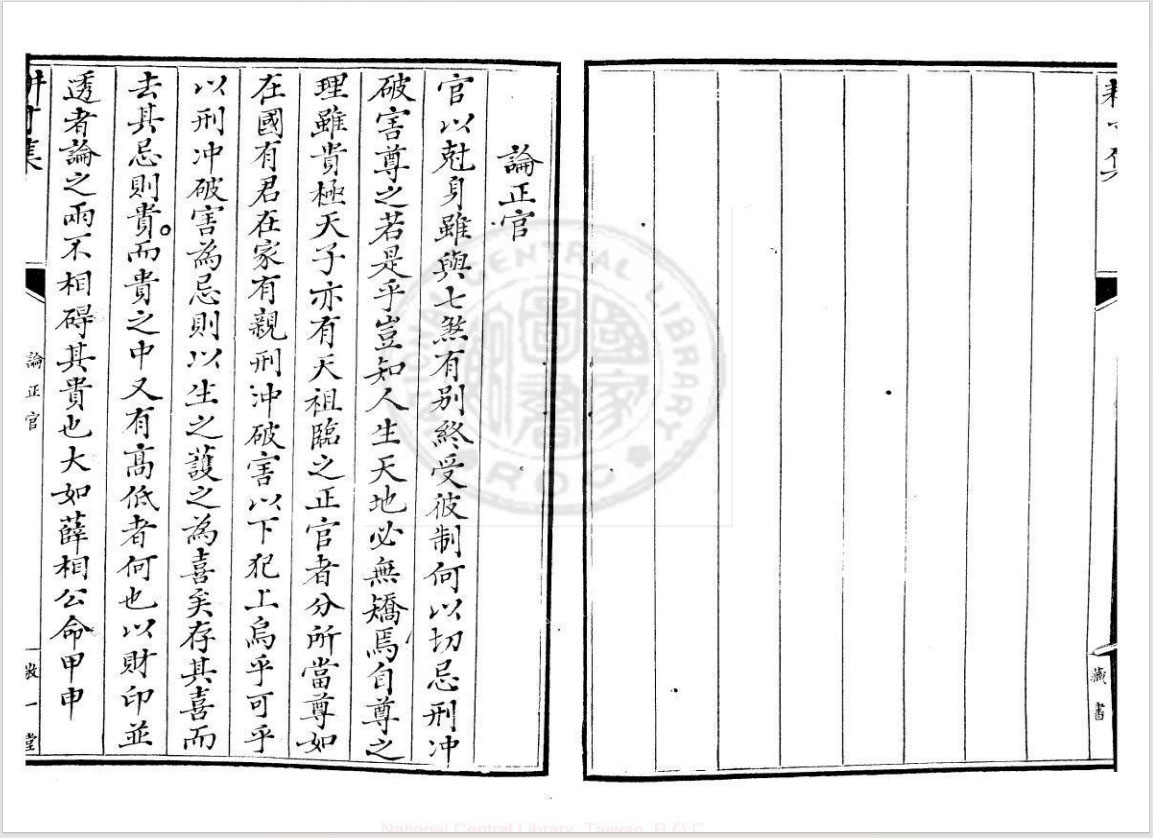 藏書
論正官
官以尅身雖與七煞有別終受彼制何以切忌刑冲
破害尊之若是乎豈知人生天地必無矯焉自尊之
理雖貴極天子亦有天祖臨之正官者分所當尊如
在國有君在家有親刑冲破害以下犯上烏乎可乎
以刑冲破害為忌則以生之護之為喜矣存其喜而
去其忌則貴。而貴之中又有高低者何也以財印並
透者論之兩不相碍其貴也大如薛相公命甲申
論正官
一堂
NATIONAL CENTRAL LIBRARY
R O C
國家圖書
National Central Library, Taiwan, R.O.C